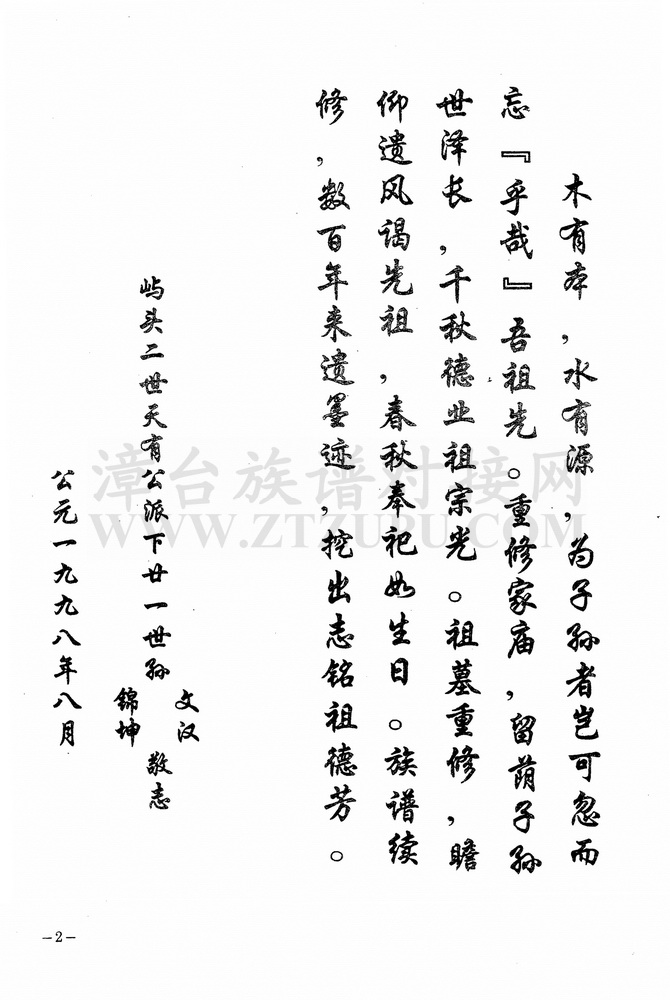 木有本，水有源，为子孙者岂可忽而
忘『乎哉』吾祖先。重修家庙，留荫子孙
世泽长，千秋德业祖宗光。祖墓重修，瞻
仰遗风谒先祖，春秋奉祀如生日。族谱续
修，数百年来遗墨迹，挖出志铭祖德芳。
屿头二世天有公派下廿一世孙
文汉
錦坤
敬志
公元一九九八年八月
漳台族谱对接网
WWW.ZTZUPU.COM
－2－